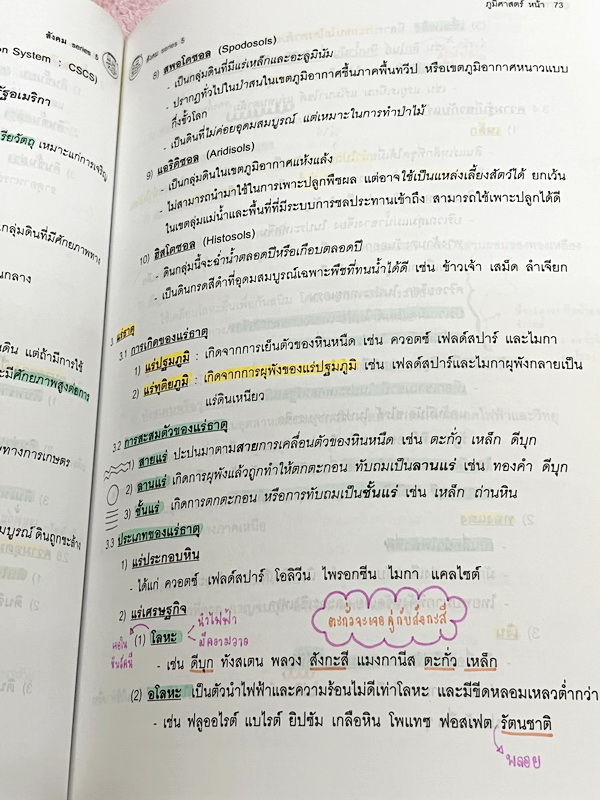 ภูมิศาสตร์ หน้า 73
สังคม series 5
สังคม series 5
on System : CSCS)
รัฐอเมริกา
เหมาะแก่การเจริญ
กลุ่มดินที่มีศักยภาพทาง
นกลาง
ดิน แต่ถ้ามีการใช้
ะมีศักยภาพสูงต่อการ
พทางการเกษตร
มบูรณ์ ดินถูกชะล้าง
8) สพอโดซอล (Spodosols)
- เป็นกลุ่มดินที่มีแร่เหล็กและอะลูมินัม
- ปรากฏทั่วไปในป่าสนในเขตภูมิอากาศชื้นภาคพื้นทวีป หรือเขตภูมิอากาศหนาวแบบ
กึ่งขั้วโลก
- เป็นดินที่ไม่ค่อยอุดมสมบูรณ์ แต่เหมาะในการทำป่าไม้
9) แอริดิซอล (Aridisols)
- เป็นกลุ่มดินในเขตภูมิอากาศแห้งแล้ง
- ไม่สามารถนำมาใช้ในการเพาะปลูกพืชผล แต่อาจใช้เป็นแหล่งเลี้ยงสัตว์ได้ ยกเว้น
ในเขตลุ่มแม่น้ำและพื้นที่ที่มีระบบการชลประทานเข้าถึง สามารถใช้เพาะปลูกได้ดี
10) ฮิสโตซอล (Histosols)
- ดินกลุ่มนี้จะฉ่ำน้ำตลอดปีหรือเกือบตลอดปี
- เป็นดินกรดสีดำที่อุดมสมบูรณ์เฉพาะพืชที่ทนน้ำได้ดี เช่น ข้าวเจ้า เสม็ด ลำเจียก
3. แร่ธาตุ
3.1 การเกิดของแร่ธาตุ
1) แร่ปฐมภูมิ : เกิดจากการเย็นตัวของหินหนืด เช่น ควอตซ์ เฟลด์สปาร์ และไมกา
2) แร่ทุติยภูมิ : เกิดจากการผุพังของแร่ปฐมภูมิ เช่น เฟลด์สปาร์และไมกาผุพังกลายเป็น
แร่ดินเหนียว
3.2 การสะสมตัวของแร่ธาตุ
1) สายแร่ ปะปนมาตามสายการเคลื่อนตัวของหินหนืด เช่น ตะกั่ว เหล็ก ดีบุก
2) ลานแร่ เกิดการผุพังแล้วถูกทำให้ตกตะกอน ทับถมเป็นลานแร่ เช่น ทองคำ ดีบุก
3) ชั้นแร่ เกิดการตกตะกอน หรือการทับถมเป็นชั้นแร่ เช่น เหล็ก ถ่านหิน
3.3 ประเภทของแร่ธาตุ
1) แร่ประกอบหิน
- ได้แก่ ควอตซ์ เฟลด์สปาร์ โอลิวีน ไพรอกซีน ไมกา แคลไซต์
2) แร่เศรษฐกิจ
นำไฟฟ้า
ตะกั่วจะเจอคู่กับสังกะสี
(1) โลหะ
มีความวาว
- เช่น ดีบุก ทังสเตน พลวง สังกะสี แมงกานีส ตะกั่ว เหล็ก
(2) อโลหะ เป็นตัวนำไฟฟ้าและความร้อนไม่ดีเท่าโลหะ และมีขีดหลอมเหลวต่ำกว่า
- เช่น ฟลูออไรต์ แบไรต์ ยิปซัม เกลือหิน โพแทซ ฟอสเฟต รัตนชาติ
พลอย